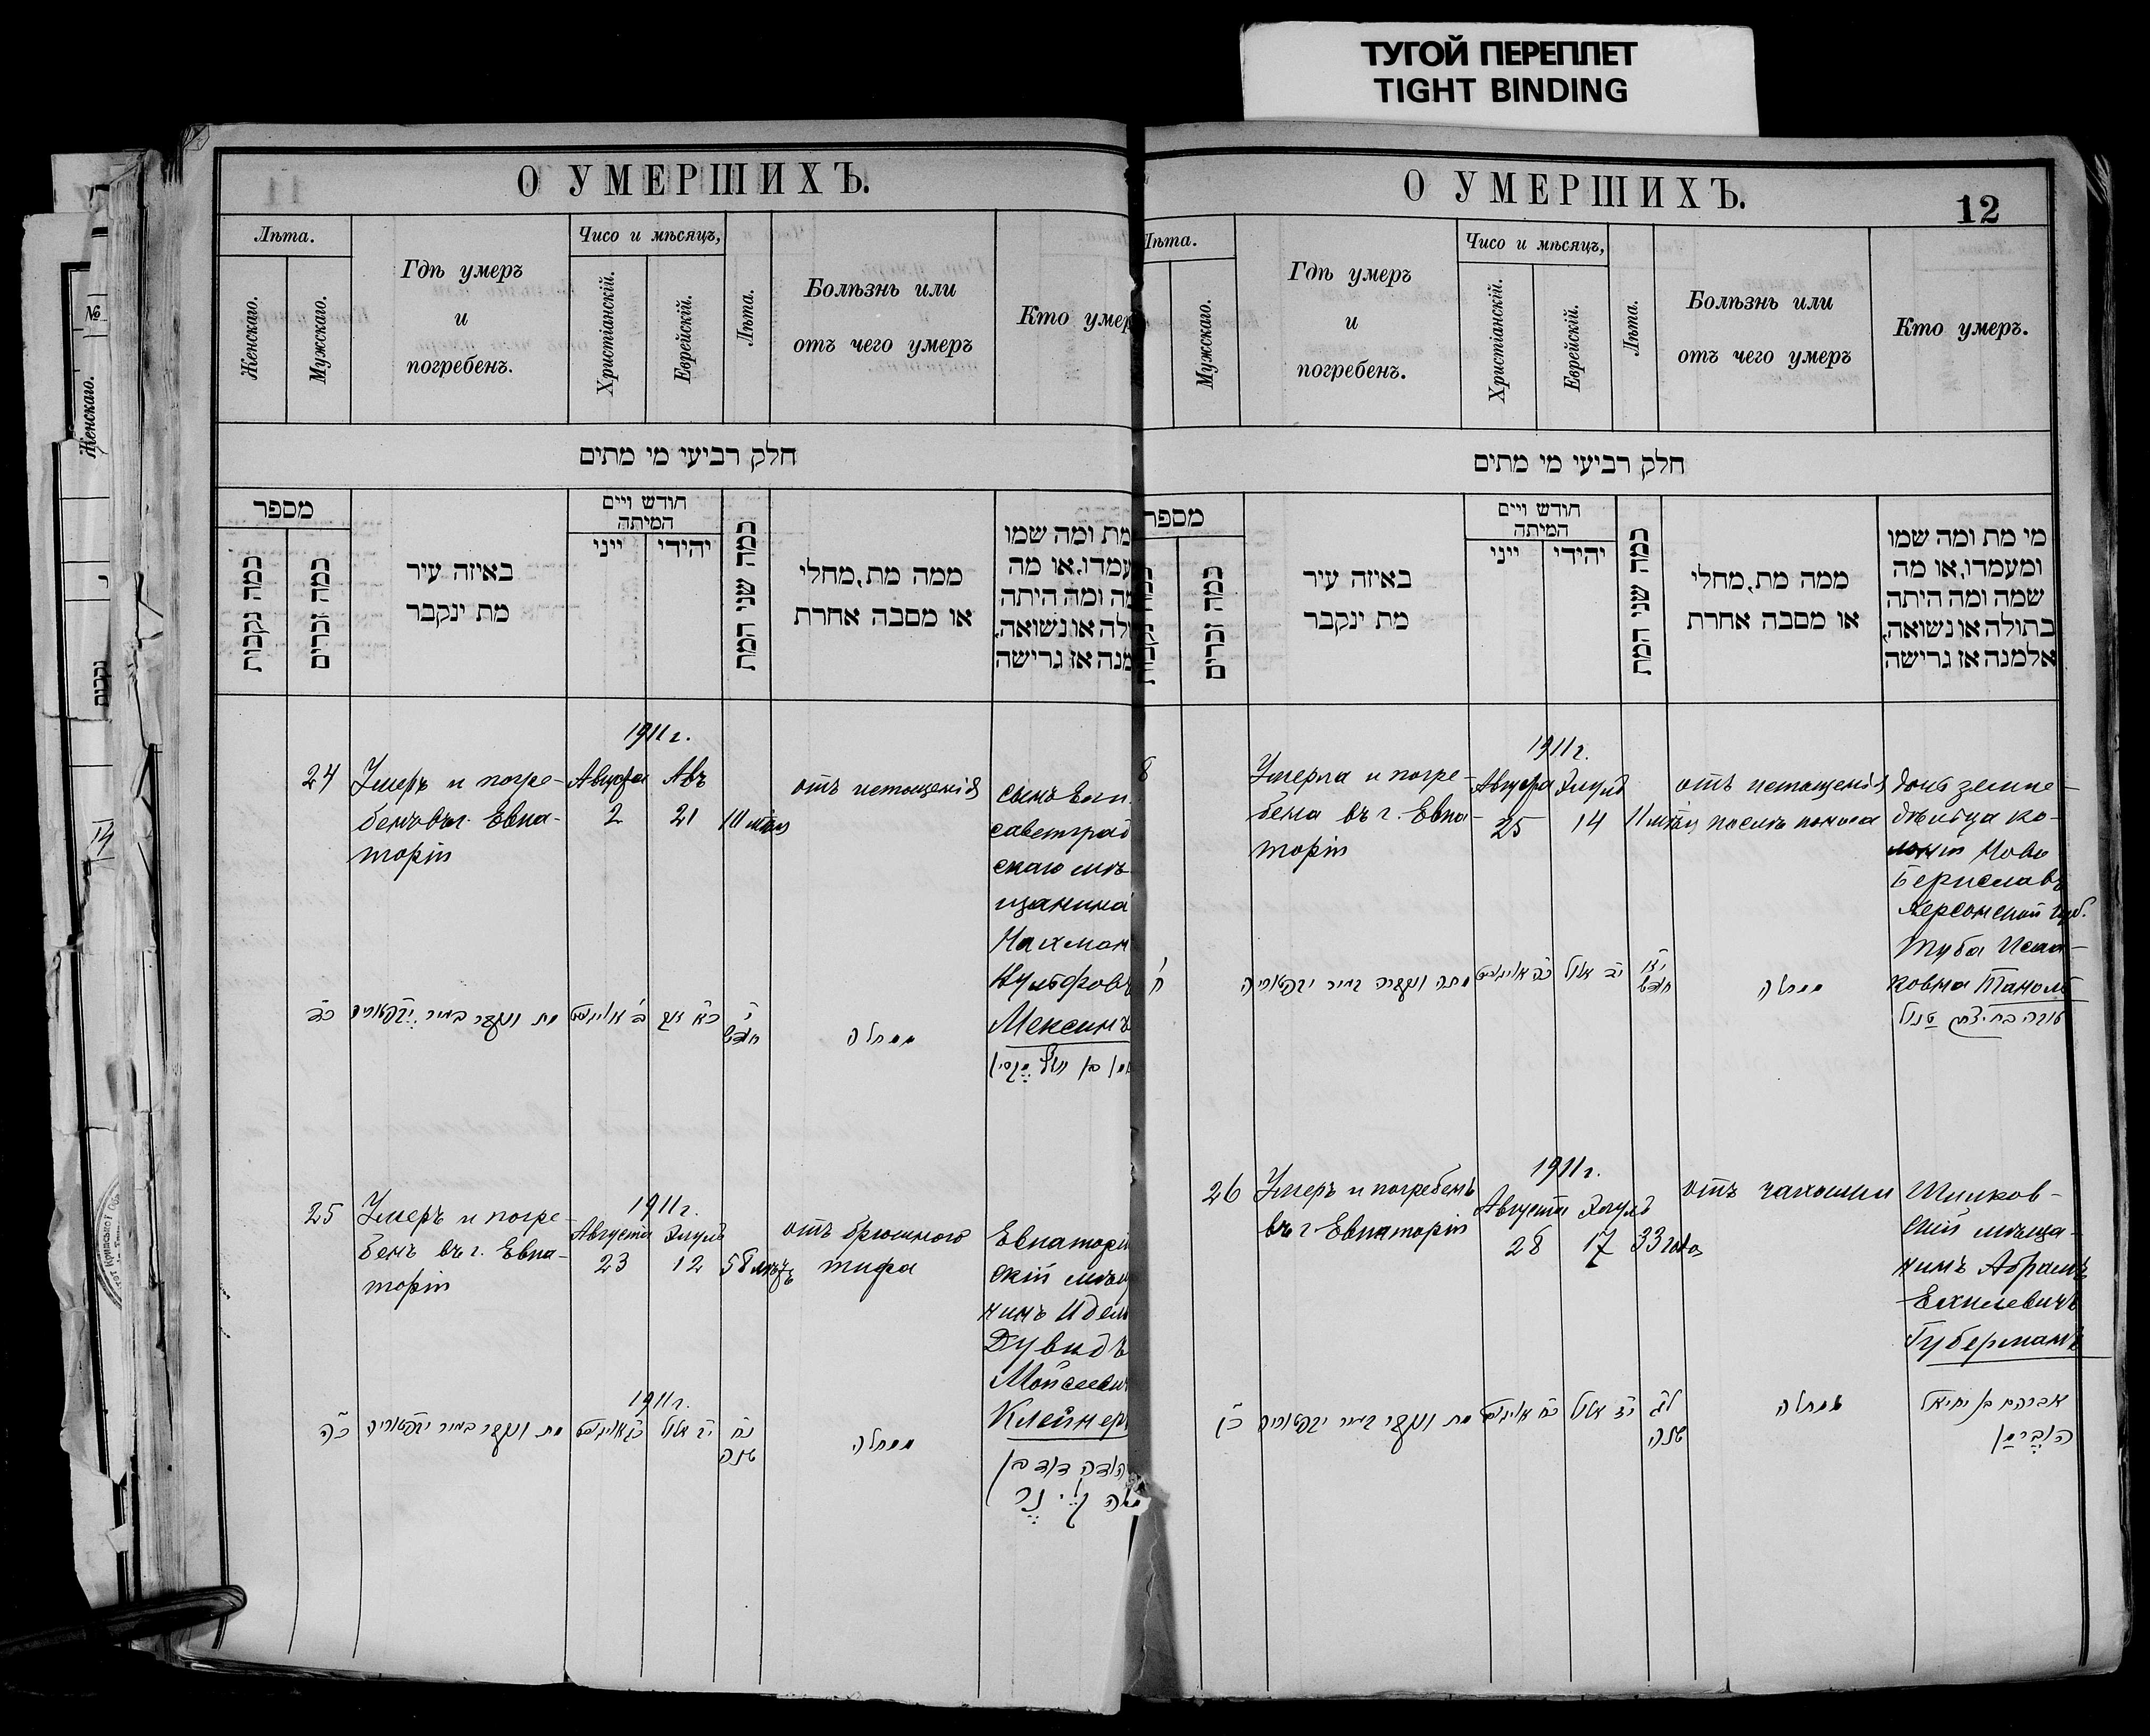 ТУГОЙ ПЕРЕПЛЕТ
TIGHT BINDING
О УМЕРШИХЪ.
Лѣта.
Женскаго.
Мужскаго.
Гдѣ умеръ
и
погребенъ.
Чисо и мѣсяцъ,
Христіанскій.
Еврейскій.
Лѣта.
Болѣзнь или
отъ чего умеръ
Кто умер
חלק רביעי מי מתים
מספר
כמה נקבות
כמה זכרים
באיזה עיר
מת ינקבר
חודש ויים
המיתה
ייני
יהידי
כמה שני המת
ממה מת, מחלי
או מסבה אחרת
מת ומה שמו
עמדו, או מה
מה ומה היתה
ולה או נשואה,
מנה אז גרישה
24
Умеръ и погре-
бенъ въ г. Евпа-
торіи
1911 г.
Августа
2
Авъ
21
отъ истощенія
сынъ Ели
саветград
скаго мѣ
щанина
Нахман
Вульфовъ
Мексинъ
כד
מת ונקבר בעיר יבפטוריה
ב אויגוסט
כא אב
י
חדש
מחלה
25
Умеръ и погре-
бенъ въ г. Евпа-
торіи
1911 г.
Августа
23
Элулъ
12
58 лѣтъ
отъ брюшного
тифа
Евпатори
скій мѣщ
нинъ Идель
Дувидъ
Мойсеевич
Клейнер
1911 г.
כה
מת ונקבר בעיר יבפטוריה
כג אויגוסט
יב אלול
נח
שנה
מחלה
הודה דוד בן
О УМЕРШИХЪ.
12
Лѣта.
Мужскаго.
Гдѣ умеръ
и
погребенъ.
Чисо и мѣсяцъ,
Христіанскій.
Еврейскій.
Лѣта.
Болѣзнь или
отъ чего умеръ
Кто умеръ.
חלק רביעי מי מתים
מספר
כמה זכרים
באיזה עיר
מת ינקבר
חודש ויים
המיתה
ייני
יהידי
כמה שני המת
ממה מת, מחלי
או מסבה אחרת
מי מת ומה שמו
ומעמדו, או מה
שמה ומה היתה
בתולה או נשואה,
אלמנה אז גרישה
8
Умерла и погре-
бена въ г. Евпа-
торіи
1911 г.
Августа
25
Элулъ
14
отъ истощенія
послѣ поноса
дочь земле-
дѣльца ко-
лоніи Ново
Бериславъ
Херсонской губ.
Туба Исаа-
ковна Таноль
ח
מתה ונקברה בעיר יבפטוריה
כה אויגוסט
יד אלול
יא
חדש
מחלה
26
Умеръ и погребенъ
въ г. Евпаторіи
1911 г.
Августа
28
Элулъ
17
33 года
отъ чахотки
Шилков-
скій мѣща-
нинъ Абрамъ
Ехилевичъ
Губерманъ
כו
מת ונקבר בעיר יבפטוריה
כח אויגוסט
יז אלול
לג
שנה
מחלה
אברהם בן יחיאל
הוברמן